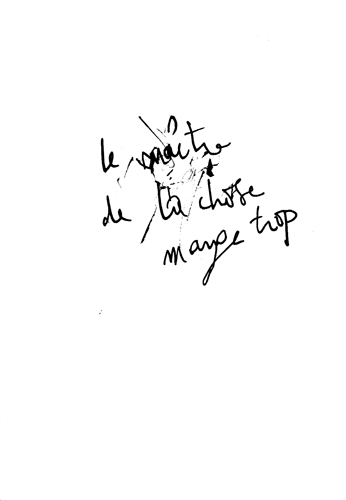 le maître
de la chose
mange trop